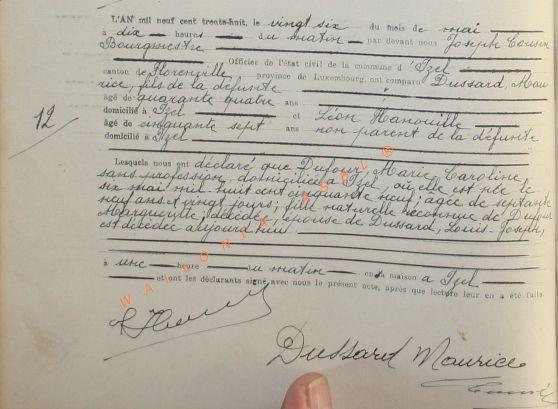 L'AN mil neuf cent trente-huit, le vingt six du mois de mai
à dix heures du matin par devant nous Joseph Cousin
Bourgmestre
Officier de l'état civil de la commune d'Izel
canton de Florenville province de Luxembourg, ont comparu Dussard, Mau
rice, fils de la défunte
âgé de quarante quatre ans
domicilié à Izel et Léon Hanouille
âgé de cinquante sept ans non parent de la défunte
domicilié à Izel
12
Lesquels nous ont déclaré que Dufour, Marie, Caroline
sans profession, domiciliée à Izel, où elle est née le
six mai mil huit cent cinquante neuf; agée de septante
neuf ans et vingt jours; fille naturelle reconnue de Dufour
Marguerite, décédée, épouse de Dussard, Louis-Joseph,
est décédée aujourd'hui
à une heure du matin en sa maison à Izel
et ont les déclarants signé avec nous le présent acte, après que lecture leur en a été faite.
Dussard Maurice